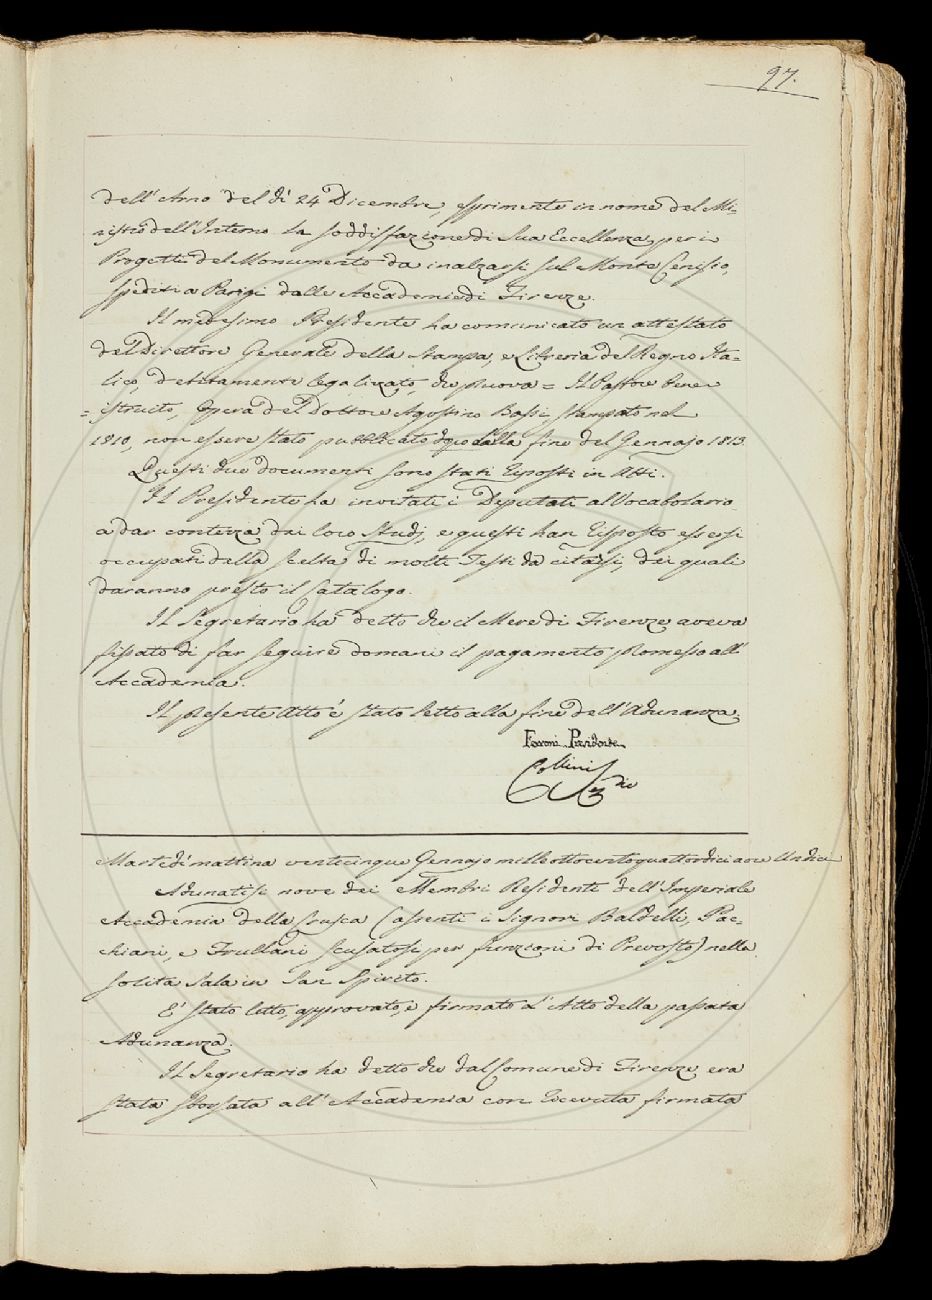 97.
dell'Arno del dì 24 Dicembre, esprimente in nome del Mi-
nistro dell'Interno la soddisfazione di Sua Eccellenza per i
Progetti del Monumento da inalzarsi sul Monte Cenisio,
spediti a Parigi dalle Accademie di Firenze.
Il medesimo Presidente ha comunicato un attestato
del Direttore Generale della Stampa, e Libreria del Regno Ita-
lico, debitamente legalizzato, che prova = Il Pastore bene
= istruito, Opera del Dottore Agostino Bassi, stampato nel
1810, non essere stato pubblicato che dalla fine del Gennajo 1813.
Questi due documenti sono stati riposti in Atti.
Il Presidente ha invitati i Deputati al Vocabolario
a dar contezza dei loro Studj, e questi han risposto essersi
occupati della scelta di molti Testi da citarsi, dei quali
daranno presto il Catalogo.
Il Segretario ha detto che il Mere di Firenze aveva
fissato di far seguire domani il pagamento promesso all'
Accademia.
Il presente Atto è stato letto alla fine dell'Adunanza.
Ferroni Presidente
Collini Segrio
Martedì mattina venticinque Gennajo milleottocentoquattordici a ore Undici
Adunatisi nove dei Membri Residenti dell'Imperiale
Accademia della Crusca (assenti i Signori Baldelli, Pac-
chiani, e Frullani scusatosi per funzioni di Prevosto) nella
solita Sala in San Spirito.
E' stato letto, approvato, e firmato l'Atto della passata
Adunanza.
Il Segretario ha detto che dal Comune di Firenze era
stata sborsata all'Accademia con ricevuta firmata